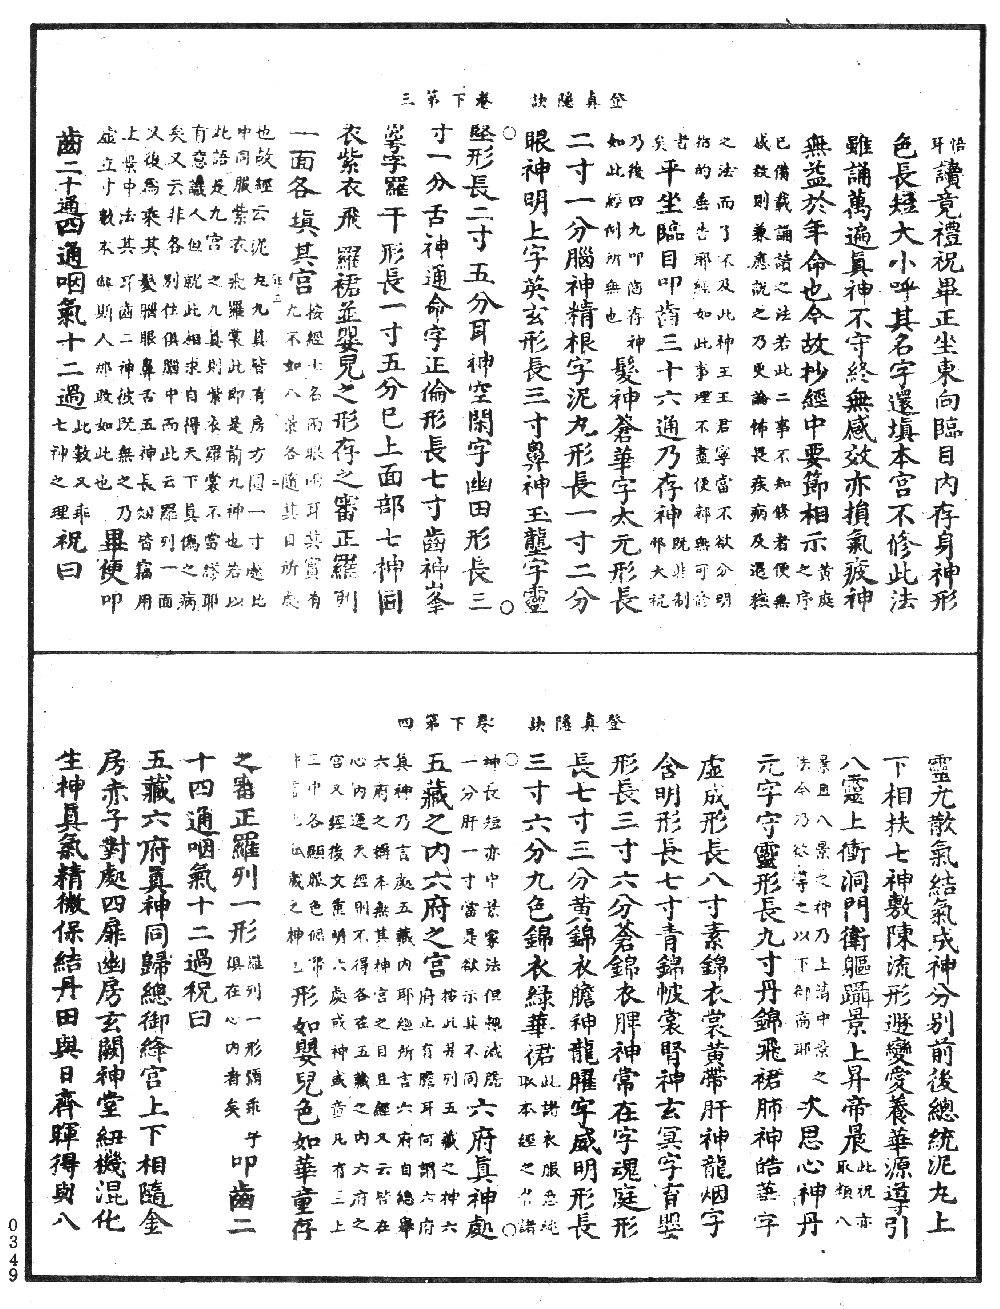 登真隱訣　卷下第三
悟耳讀竟禮祝畢正坐東向臨目內存身神形
色長短大小呼其名字還填本宮不修此法
雖誦萬遍真神不守終無感效亦損氣疲神
無益於年命也今故抄經中要節相示黃庭之序
已備載誦諸之法若此二事不知修者便無
感效則兼應說之乃更論怖畏疾病及還
之法而了不及此神王王君寧當不欲分明
指的無告耶經如此事理不盡便都無可
者矣平坐臨目叩齒三十六通乃存神既非制邪大祝
乃後四九叩齒存神如此經例所無也髮神蒼華字太元形長
二寸一分腦神精根字泥丸形長一寸二分
眼神明上字英玄形長三寸鼻神玉壟字靈
堅形長二寸五分耳神空閑字幽田形長三
寸一分舌神通命字正倫形長七寸齒神峯
崿字羅千形長一寸五分已上面部七神同
衣紫衣飛羅裙並嬰兒之形存之審正羅列
一面各填其宮按經七名而眼兩耳其實有九不如八景各隨其目所處
也故經云泥丸九真皆有房方圓一寸處此
中同服紫衣飛羅裳此即是前九神也若以
此語是九宮之九真則紫衣羅裳不當謬耶
有意議人但就此相求自得天下真偽之病
矣又云非各別住俱腦中而此云羅列一面
又後為乘其髮腦眼鼻舌五神長短皆竊用
上景中法其耳齒二神彼既無之乃
虛立寸數本如斯人那敢如此也畢便叩
齒二十通四通咽氣十二過此數又乖七神之理祝曰
登真隱訣　卷下第四
靈元散氣結氣成神分別前後總統泥丸上
下相扶七神敷陳流形遯變愛養華源導引
八靈上衝洞門衛軀躡景上昇帝晨此祝亦取類八
景且八景之神乃上清中景之
法今乃欲導之以下部高耶次思心神丹
元字守靈形長九寸丹錦飛裙肺神皓華字
虛成形長八寸素錦衣裳黃帶肝神龍烟字
含明形長七寸青錦帔裳腎神玄冥字育嬰
形長三寸六分蒼錦衣脾神常在字魂庭形
長七寸三分黃錦衣膽神龍曜字威明形長
三寸六分九色錦衣綠華裙此諸衣服悉純取本經之諸
神長短亦中景家法但無減膽
一分肝一寸當是欲示其不同六府真神處
五藏之內六府之宮按此是列五藏之神六府止有膽耳何謂六府
真神乃言處五藏內耶經所言六府自總舉
六府之稱本無其神宮之目且經又云皆在
心內運天經則不得各在五藏之內六府之
宮又經後文重明六處或神或童凡有三上
三中各願服色條帶
形如嬰兒色如華童存
之審正羅列一形羅列一形彌乖俱在心內者矣乎叩齒二
十四通咽氣十二過祝曰
五藏六府真神同歸總御絳宮上下相隨金
房赤子對處四扉幽房玄闕神堂紐機混化
生神真氣精微保結丹田與日齊暉得與八
0349